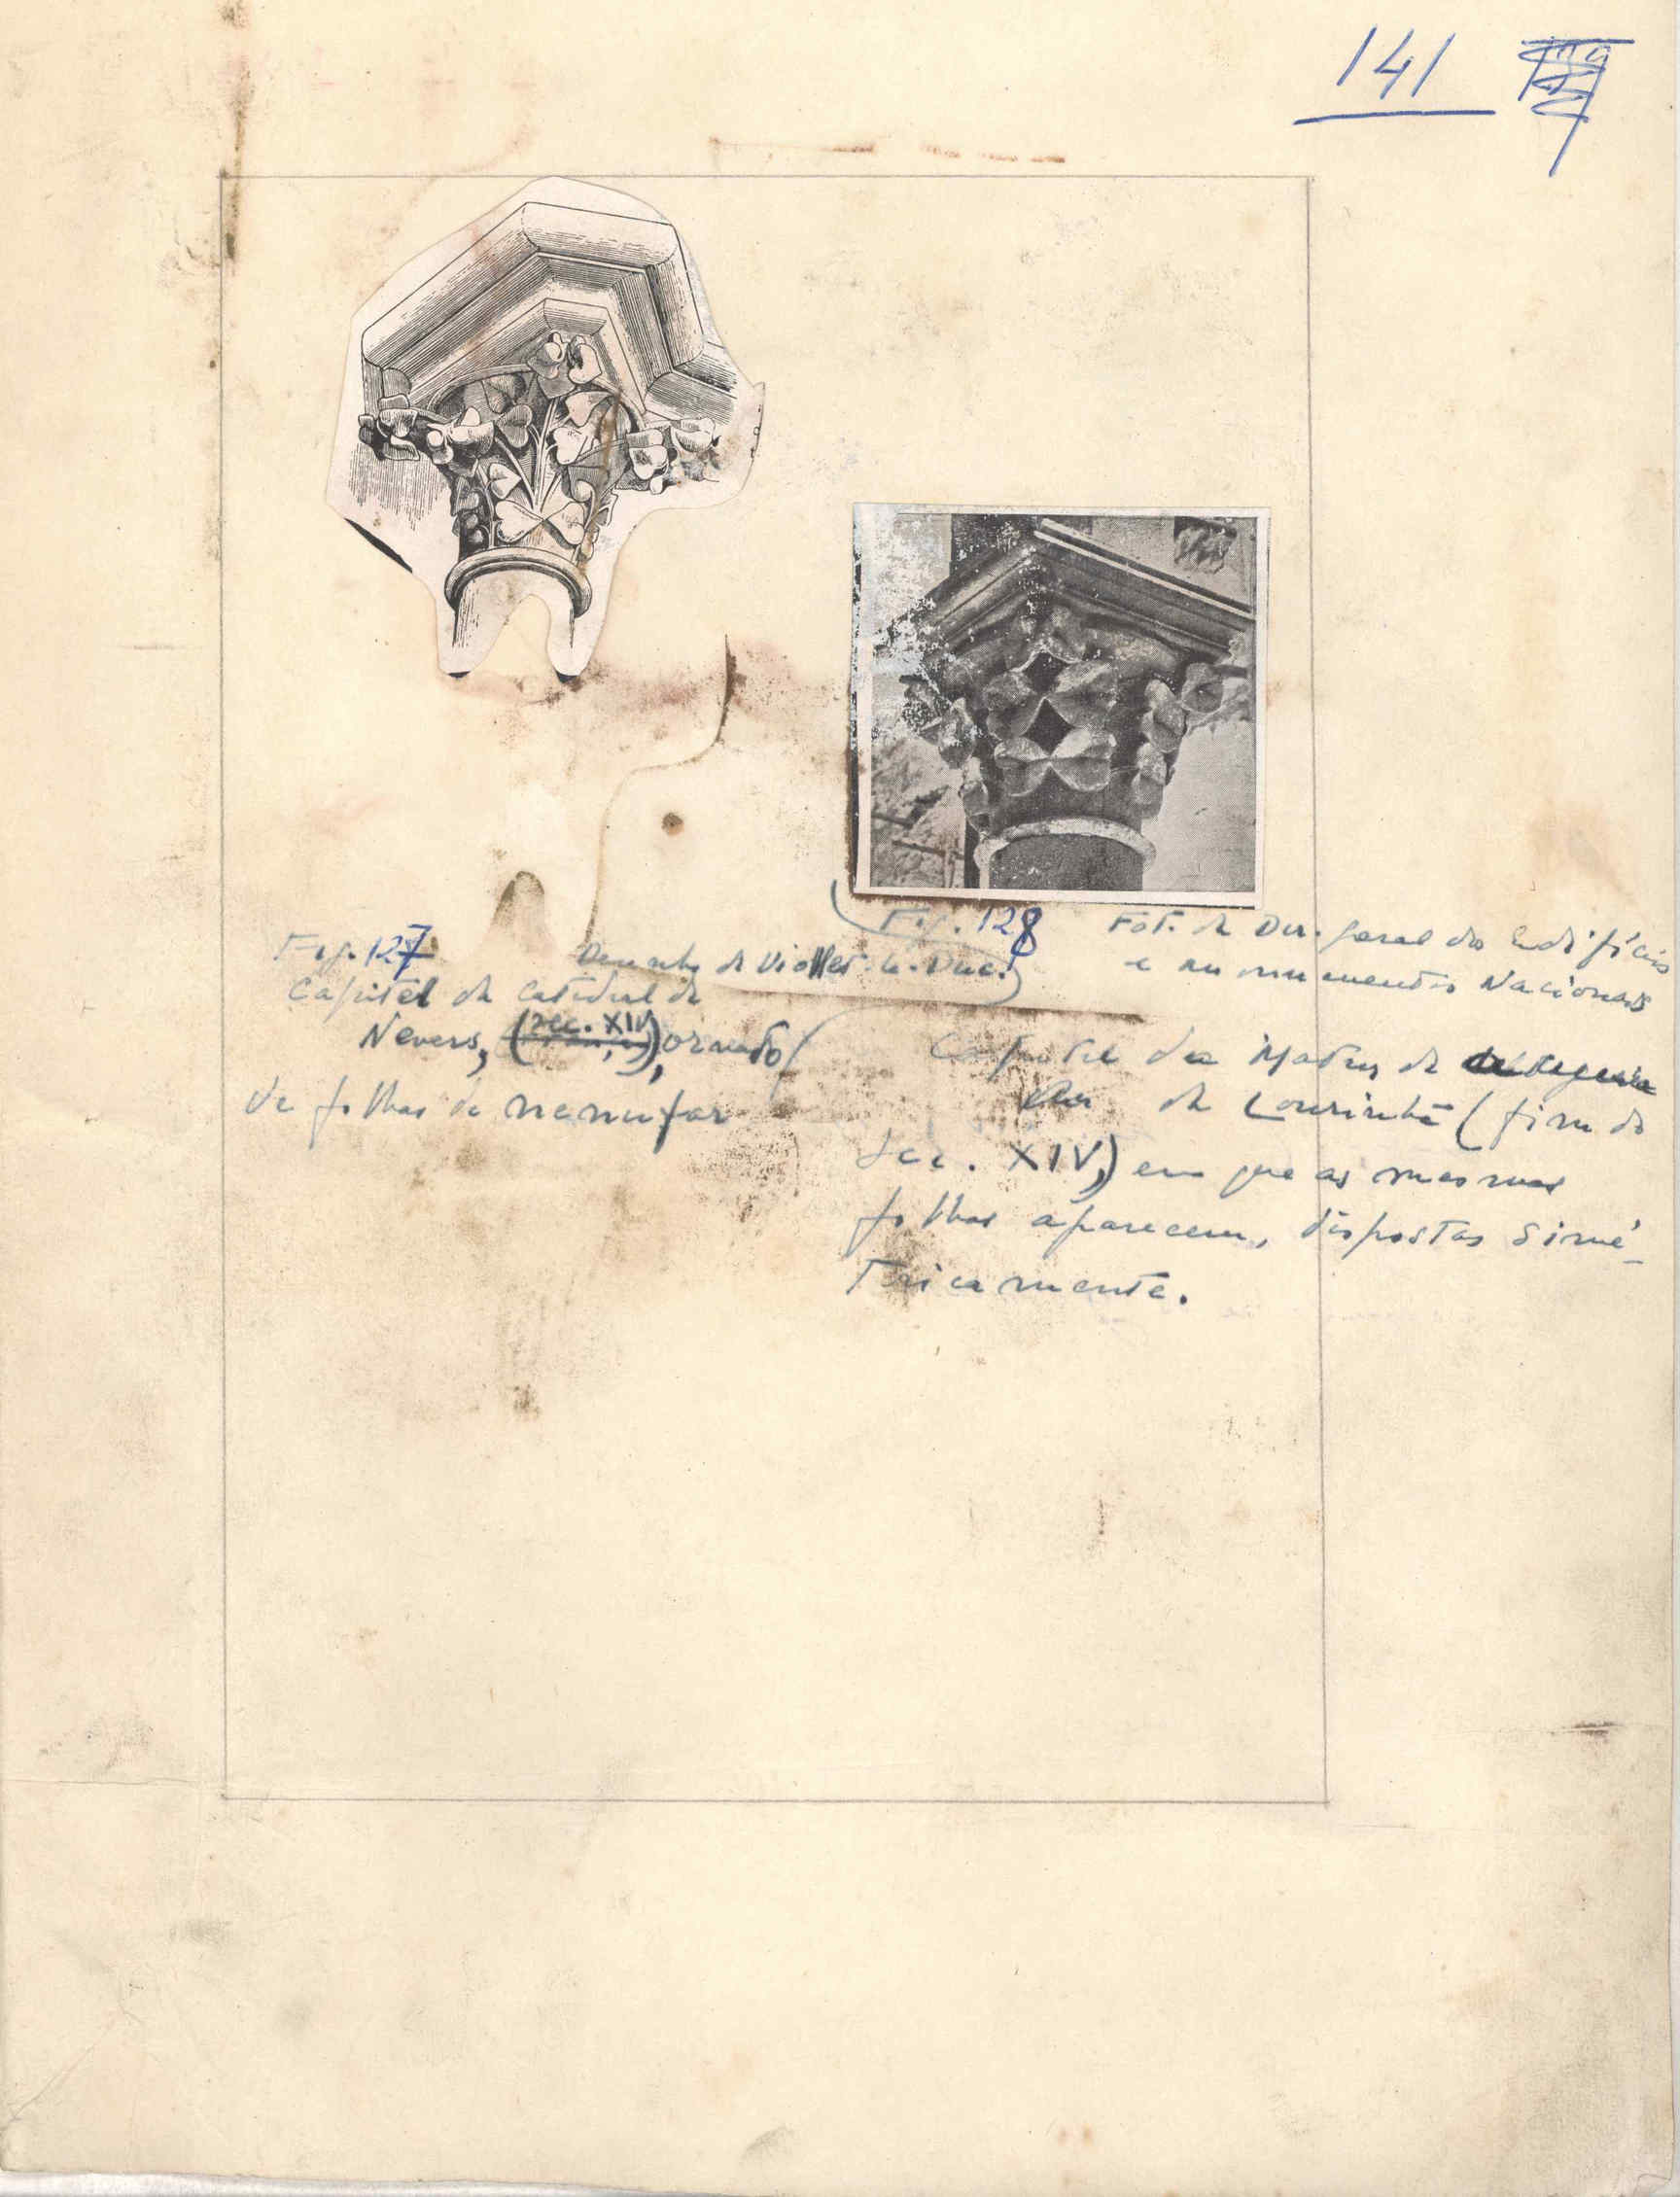 141
Fig. 127
Desenho de Viollet-le-Duc.
Capitel da Catedral de
Nevers, (sec. XIV), ornado
de folhas de nenufar
Fig. 128
Fot. da Dir. geral dos Edifícios
e monumentos Nacionais
Capitel da Matriz da
da Lourinhã (fim do
sec. XIV,) em que as mesmas
folhas aparecem, dispostas simé-
tricamente.